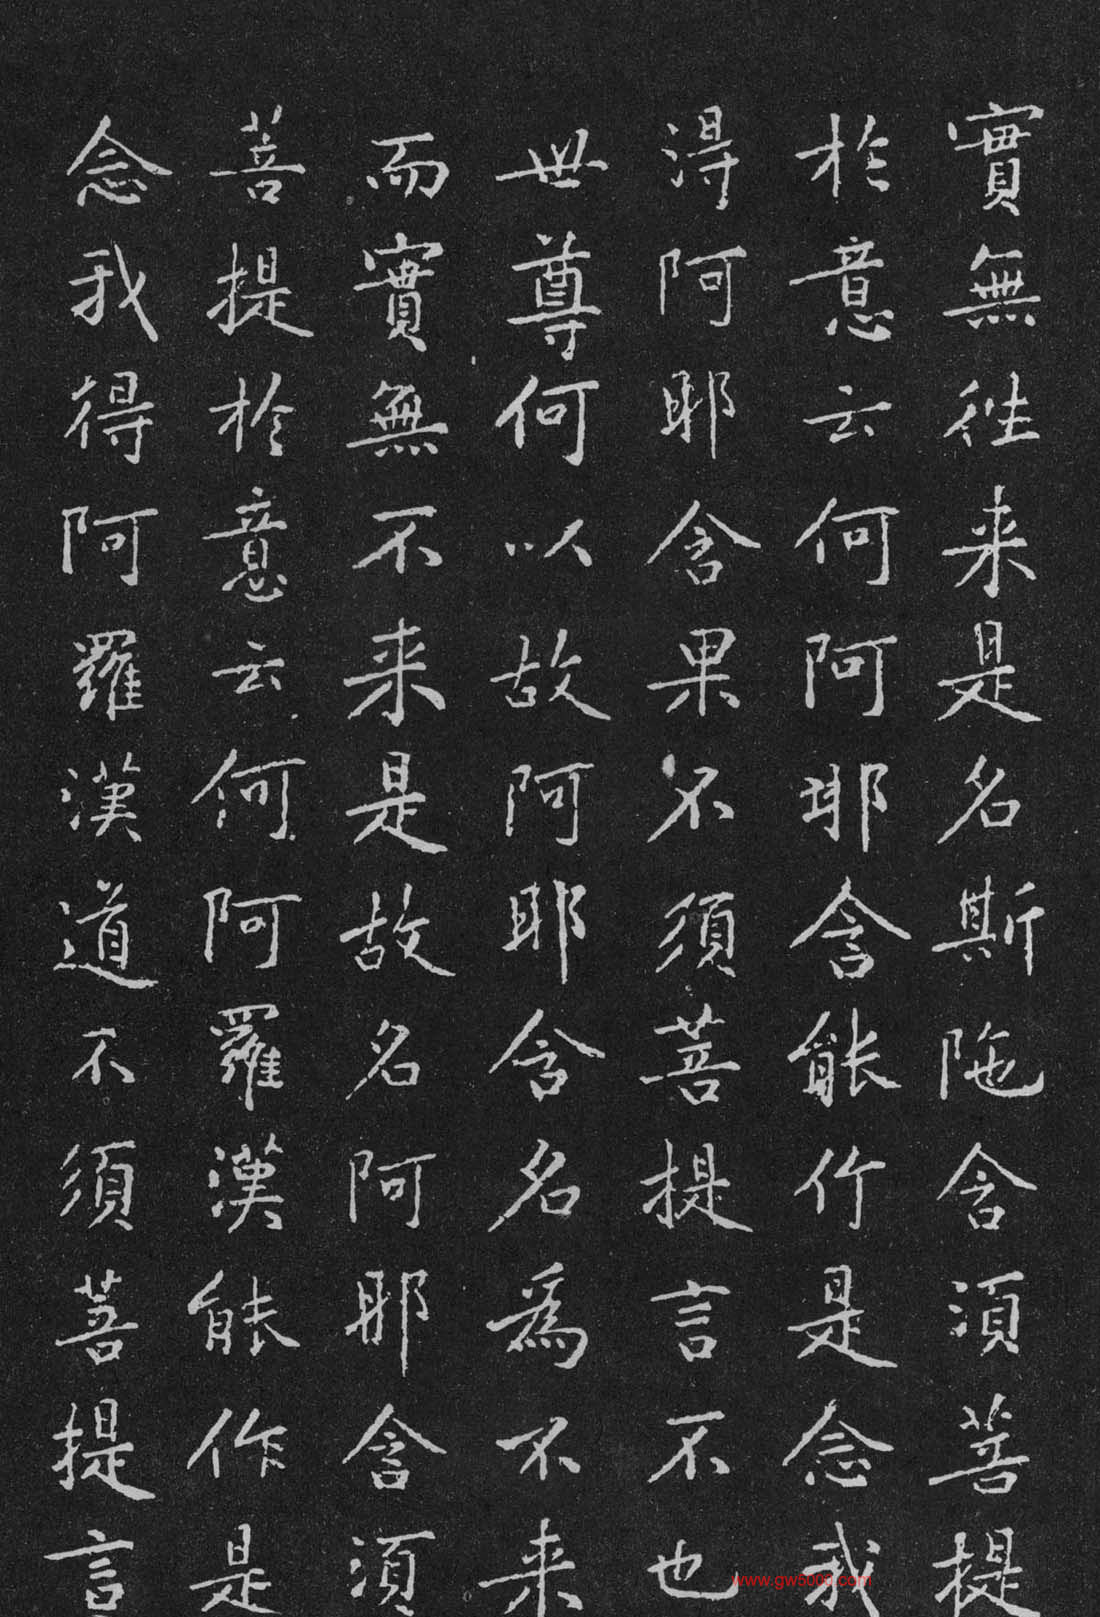 實無往来是名斯陁含須菩提
於意云何阿耶含能作是念我
得阿耶含果不須菩提言不也
世尊何以故阿耶含名為不来
而實無不来是故名阿耶含須
菩提於意云何阿羅漢能作是
念我得阿羅漢道不須菩提言
www.gw5000.com